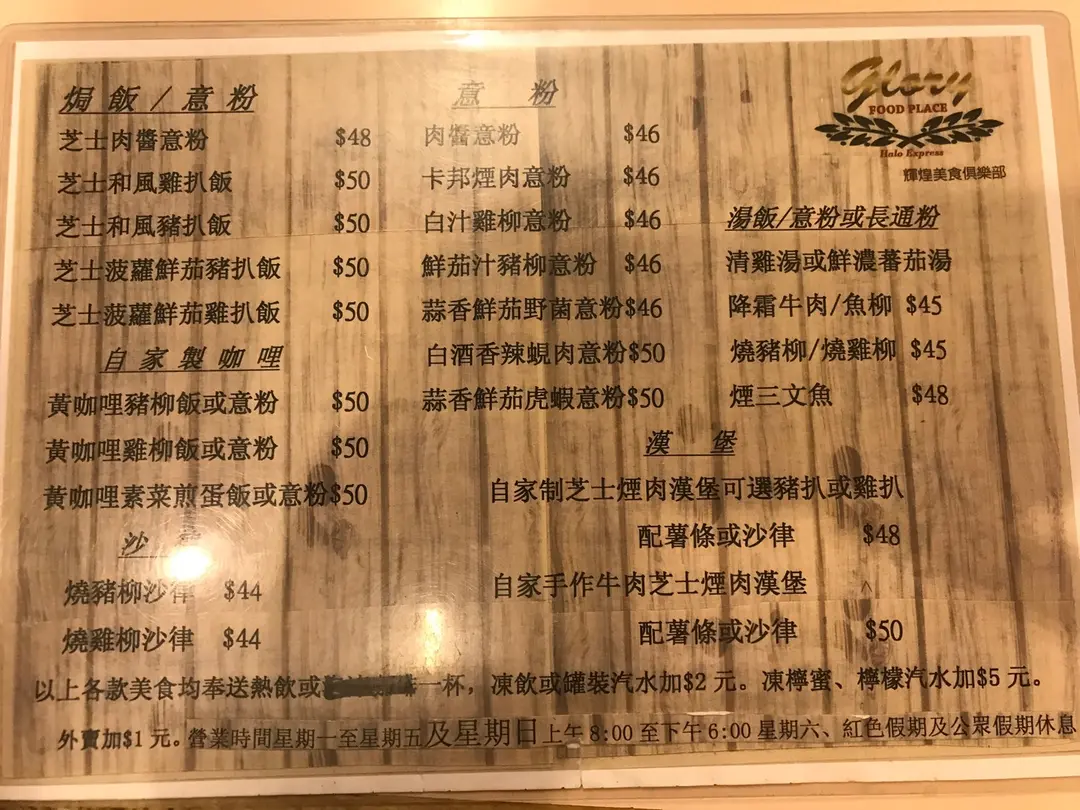 Glory
FOOD PLACE
Halo Express
輝煌美食俱樂部
焗飯/意粉
芝士肉醬意粉 $48
芝士和風雞扒飯 $50
芝士和風豬扒飯 $50
芝士菠蘿鮮茄豬扒飯 $50
芝士菠蘿鮮茄雞扒飯 $50
自家製咖哩
黃咖哩豬柳飯或意粉 $50
黃咖哩雞柳飯或意粉 $50
黃咖哩素菜煎蛋飯或意粉$50
沙
燒豬柳沙律 $44
燒雞柳沙律 $44
意粉
肉醬意粉 $46
卡邦煙肉意粉 $46
白汁雞柳意粉 $46
鮮茄汁豬柳意粉 $46
蒜香鮮茄野菌意粉$46
白酒香辣蜆肉意粉$50
蒜香鮮茄虎蝦意粉$50
湯飯/意粉或長通粉
清雞湯或鮮濃蕃茄湯
降霜牛肉/魚柳 $45
燒豬柳/燒雞柳 $45
煙三文魚 $48
漢堡
自家制芝士煙肉漢堡可選豬扒或雞扒
配薯條或沙律 $48
自家手作牛肉芝士煙肉漢堡
配薯條或沙律 $50
以上各款美食均奉送熱飲或一杯，凍飲或罐裝汽水加$2元。凍檸蜜、檸檬汽水加$5元。
外賣加$1元。營業時間星期一至星期五及星期日上午8:00至下午6:00星期六、紅色假期及公眾假期休息